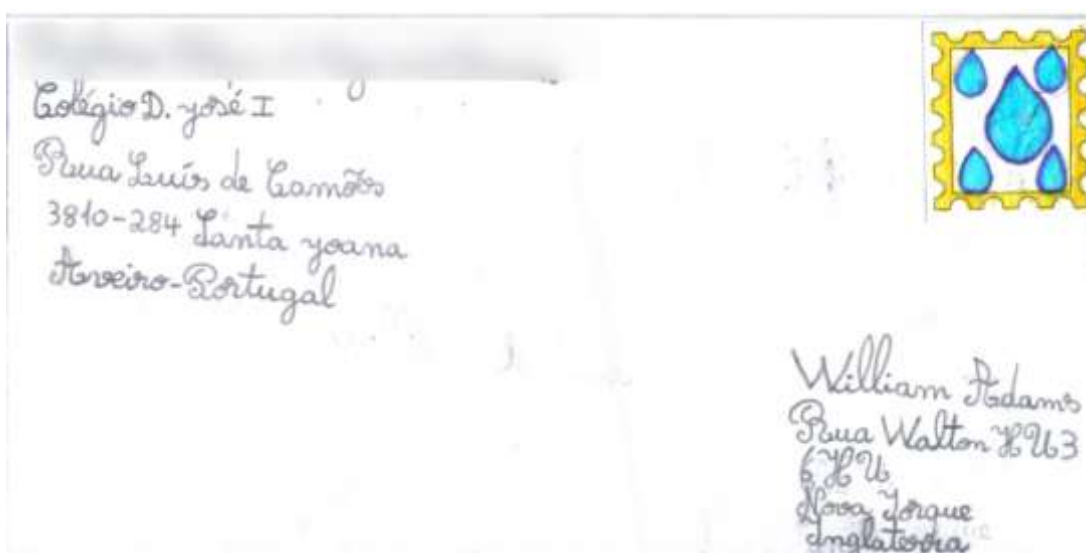 Colégio D. José I
Rua Luís de Camões
3810-284 Santa Joana
Aveiro-Portugal
William Adams
Rua Walton HU3
6HU
Nova Iorque
Inglaterra